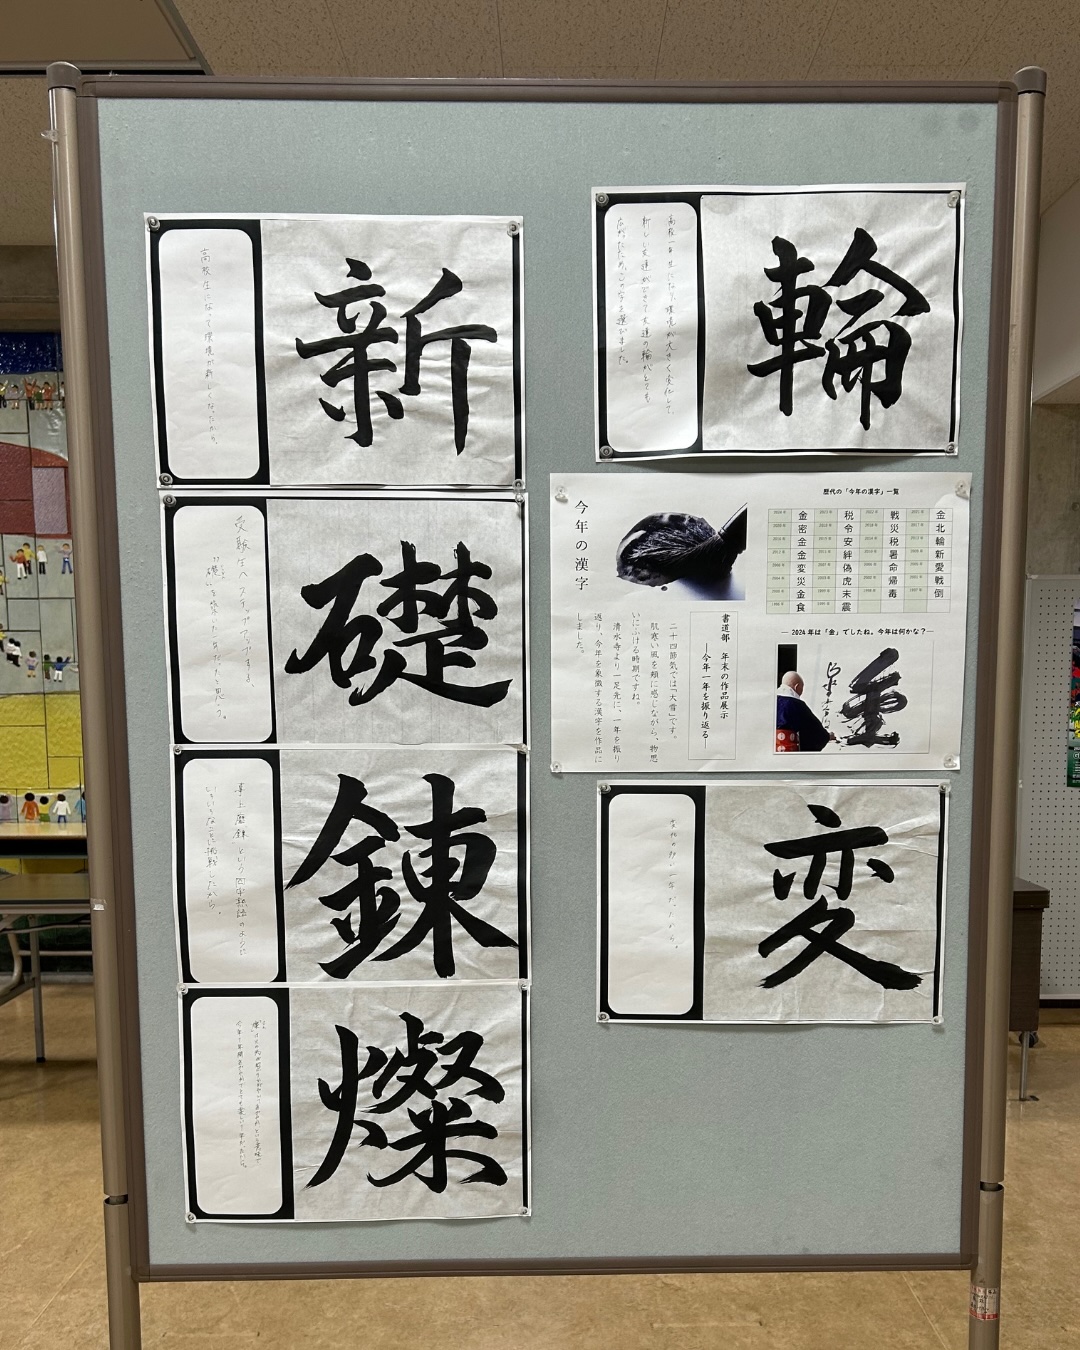 輪
高校一年生になり、環境が大きく変化して、
新しい友達ができて友達の輪がとても
広がったため、この字を選びました。
新
高校生になって環境が新しくなったから。
今年の漢字
歴代の「今年の漢字」一覧
金 税 戦 金
密 令 災 北
金 安 税 輪
金 絆 暑 新
変 偽 命 愛
災 虎 帰 戦
金 末 毒 倒
食 震
― 2024年は「金」でしたね。今年は何かな？―
書道部 年末の作品展示
―今年一年を振り返る―
二十四節気では「大雪」です。
肌寒い風を頬に感じながら、物思
いにふける時期ですね。
清水寺より一足先に、一年を振り
返り、今年を象徴する漢字を作品に
しました。
金
礎
受験生へステップアップする
錬
事上磨錬という四字熟語のように
いろいろなことに挑戦したから。
変
変化の多い一年だったから。
燦